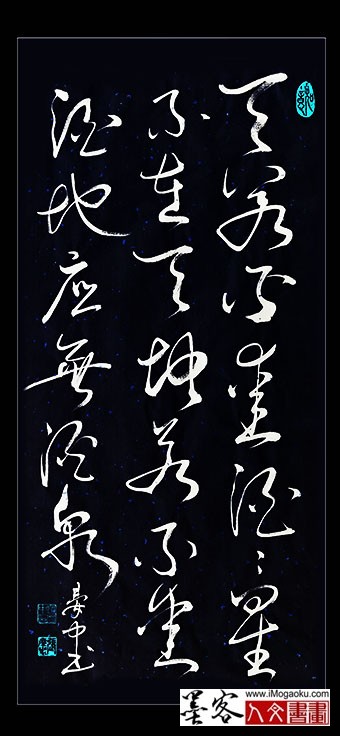 天若不愛酒〻星
不在天地若不愛
酒地應無酒泉
中书
www.iMogaoku.com
墨客人文書畫